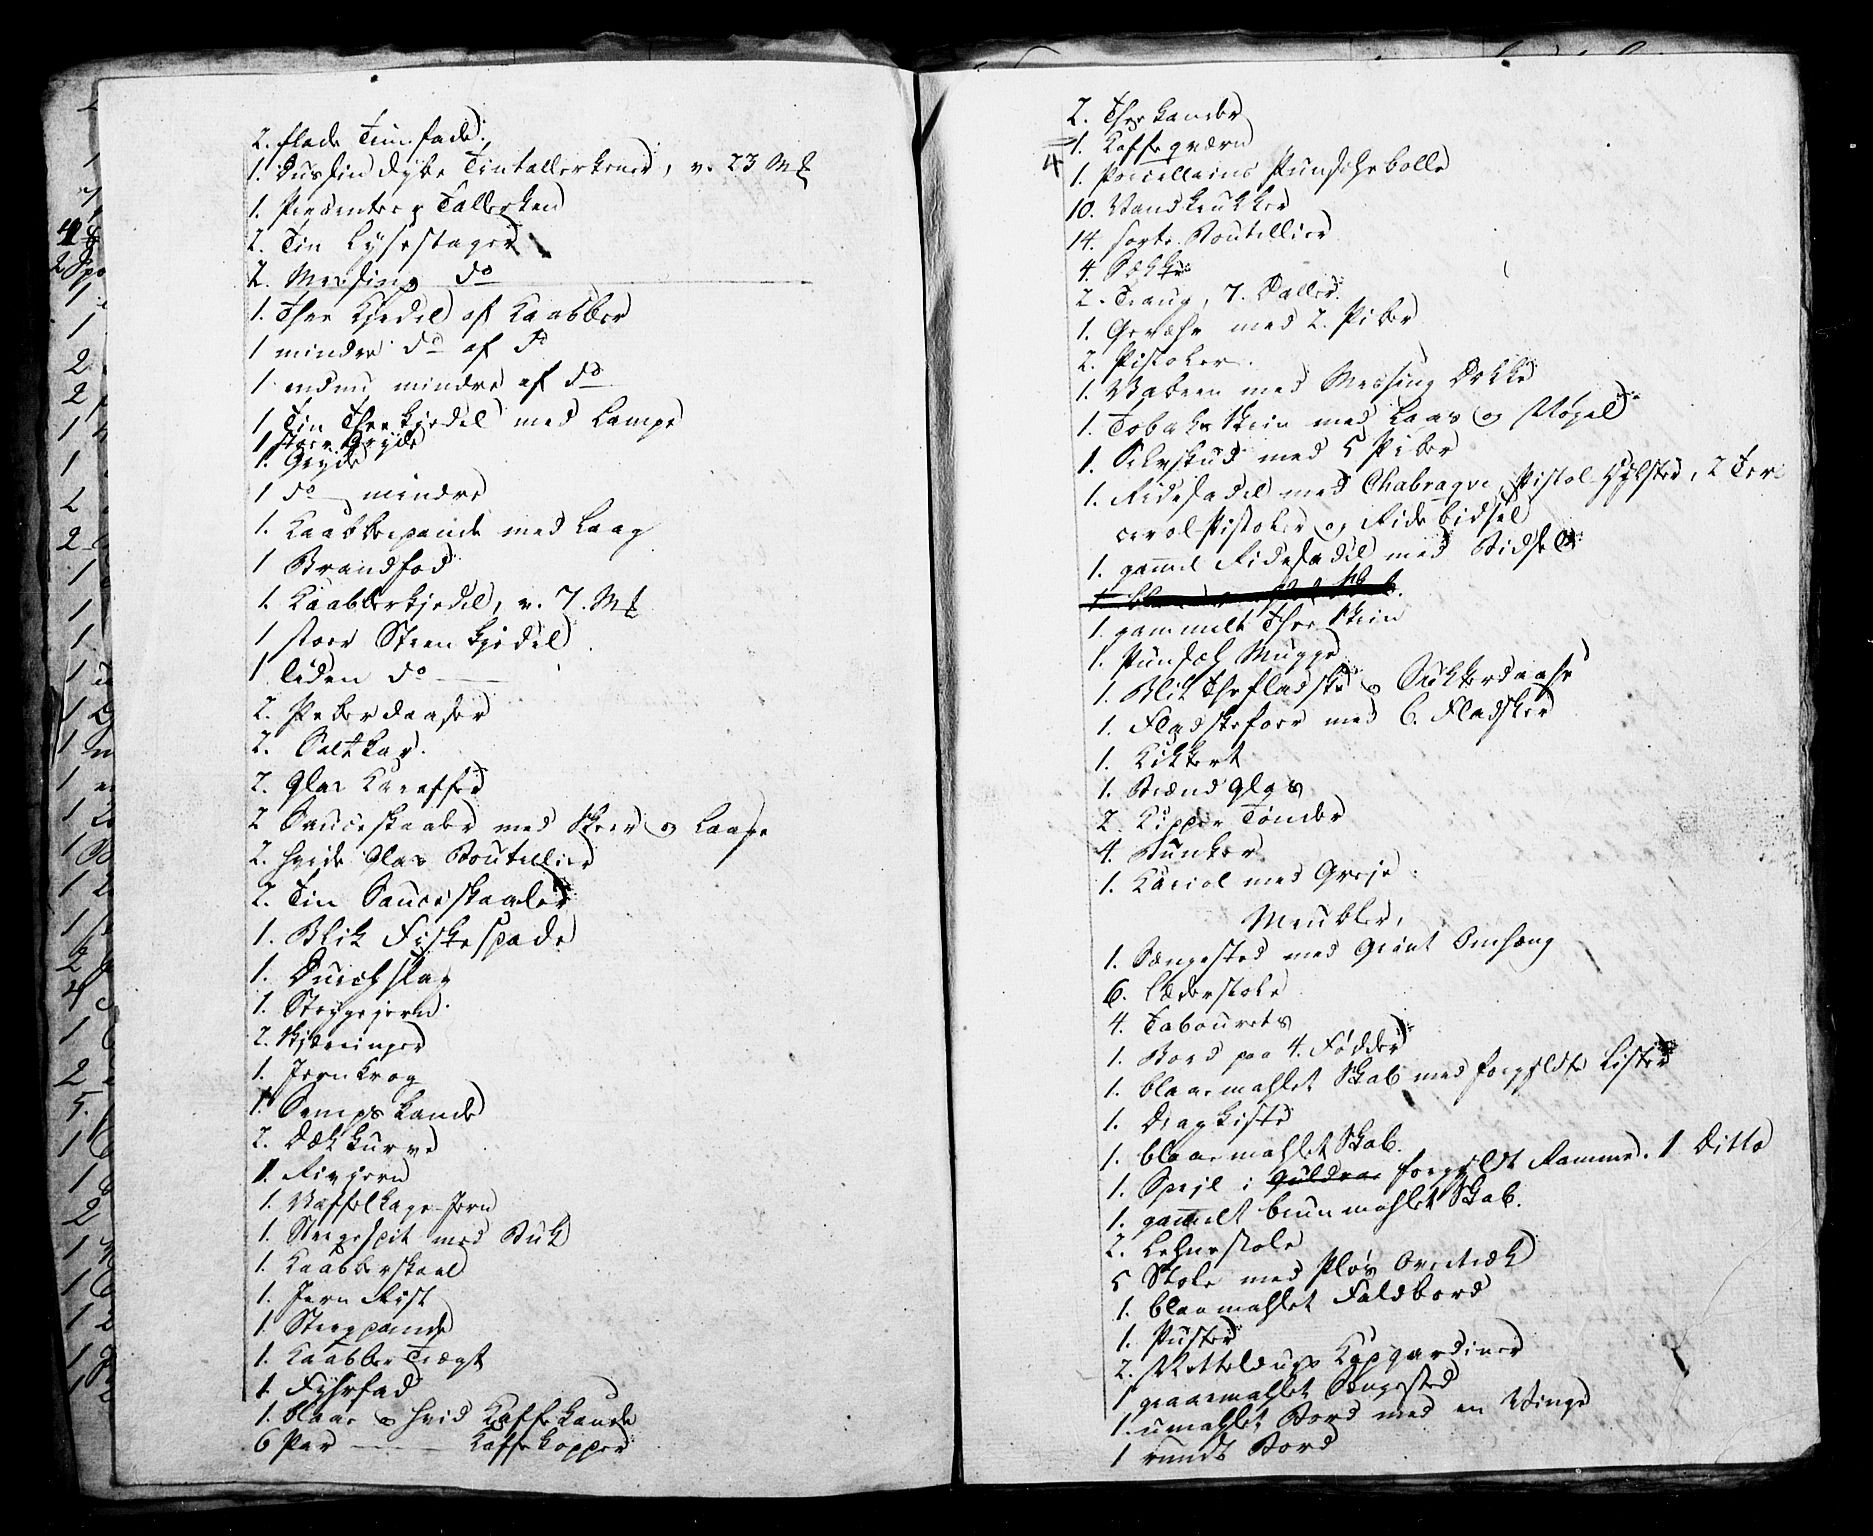 2. flade Tinfade.
1. Dussin dybe Tintallerkener, v. 23 Mk
1. Præsenteer Tallerken
2. Tin Lysestager
2. Messing do
1. Thee Kjedel af Kaabber
1 mindre do af do
1 endnu mindre af do
1 Tin Theekjedel med Lampe
1 stoer Gryde
1. Gryde
1 do mindre
1. Kaabberpande med Laag
1 Brandfod
1. Kaabberkjedel, v. 7. Mk
1 stoer Steen kjedel
1 liden do
2. Peberdaaser
2. Saltkar.
2. Glas Karafler
2 Sauceskaaler med Skeer og Laage
2. hvide Glas Boutellier
2. Tin Sauceskaaler
1. Blik Fiskespade
1. Durchslag
1. Strygejern.
2. Skjæringer
1. Jernkrog
1. Semps kande
2. Dækkurve
1. Rivjern
1. Vaffelkage-Jern
1. Stegespit med Buk
1. Kaabberskaal
1. Jern Rist
1. Steegpande
1. Kaabber Tragt
1. Fyhrfad
1. blaae og hvid Kaffe kande
6 Par — Kaffekopper
2. Theekander
1. Kaffeqværn
4
1. Porcellains Punschebolle
10. Vandkrukker
14. sorte Boutellier
4. Sække
2. Traug, 7. Baller.
1. Gevære med 2. Piber
2. Pistoler.
1. Kabeen med Messing Dække
1. Tobaks Skrin med Laas og Nøgel
1. Selvskud med 5 Piber
1. Ridesadel med Chabraqve, Pistol-Hylster, 2 Ter
cerol-Pistoler og Ridebidsel
1. gammel Ridesadel med Bidsel
1. gammelt Thee Skrin
1. Punsch Mugge
1. Blik Theeflaske og Sukkerdaase
1. Fladskefoer med 6. Fladsker
1. Kikkert
1. Brændglas
2. Kipper Tønder
4. Bunker
1. Kariol med Greje.
Meubler,
1. Sængested med Grønt Omhæng
6. Læderstole
4. Tabourets
1. Bord paa 4. Fødder
1. blaaemahlet Skab med forgyldte Lister
1. Dragkiste
1. blaaemahlet Skab.
1. Spejl i forgyldt Ramme. 1 Ditto
1. gammelt bruunmahlet Skab.
2. Lehnestole
5 Stole med Pløs Overtræk
1. blaamahlet Faldbord
1. Puster
2. Netteldugs Kapgardiner
1 graaemahlet Sængested
1. umahlet Bord med en Vinge
1 rundt Bord